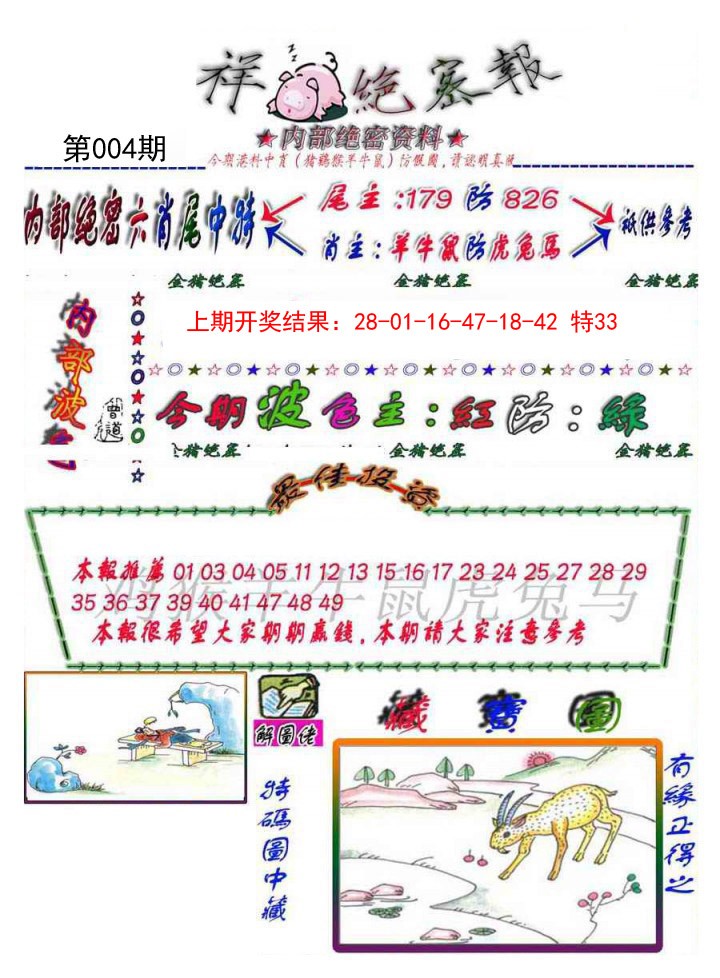 祥 絶密報
★内部绝密资料★
第004期
今期港料中肖（猪鷄猴羊牛鼠）防假圖，請認明真版
内部绝密六肖尾中特
尾主:179 防826
肖主：羊牛鼠防虎兔馬
祇供參考
金猪绝密 金猪绝密 金猪绝密
内部波色
上期开奖结果：28-01-16-47-18-42 特33
曾道
今期波色主：紅防：綠
金猪绝密 金猪绝密 金猪绝密
最佳投资
本報推薦 01 03 04 05 11 12 13 15 16 17 23 24 25 27 28 29
35 36 37 39 40 41 47 48 49
鸡猴羊牛鼠虎兔马
本報很希望大家期期贏錢，本期請大家注意參考
解圖佬
特碼圖中藏
藏寶圖
有緣正得之